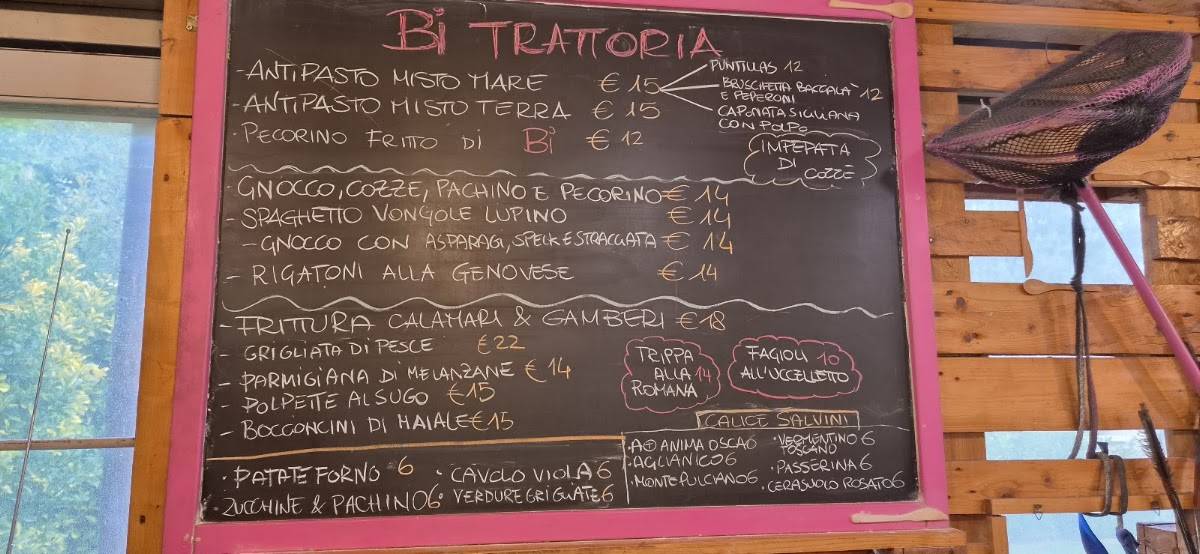 Bi TRATTORIA
- ANTIPASTO MISTO MARE € 15
- ANTIPASTO MISTO TERRA € 15
- PECORINO FRITTO DI Bi € 12
PUNTILLAS 12
BRUSCHETTA BACCALÀ
E PEPERONI 12
CAPONATA SICILIANA
CON POLPO
IMPEPATA
DI
COZZE
- GNOCCO, COZZE, PACHINO E PECORINO € 14
- SPAGHETTO VONGOLE LUPINO € 14
- GNOCCO CON ASPARAGI, SPECK E STRACCIATA € 14
- RIGATONI ALLA GENOVESE € 14
- FRITTURA CALAMARI & GAMBERI € 18
- GRIGLIATA DI PESCE € 22
- PARMIGIANA DI MELANZANE € 14
- POLPETTE AL SUGO € 15
- BOCCONCINI DI MAIALE € 15
TRIPPA
ALLA 14
ROMANA
FAGIOLI 10
ALL'UCCELLETTO
· PATATE FORNO 6
· ZUCCHINE & PACHINO 6
· CAVOLO VIOLA 6
· VERDURE GRIGLIATE 6
CALICE SALVINI
· ANIMA OSCA 6
· AGLIANICO 6
· MONTEPULCIANO 6
· VERMENTINO 6
TOSCANO
· PASSERINA 6
· CERASUOLO ROSATO 6